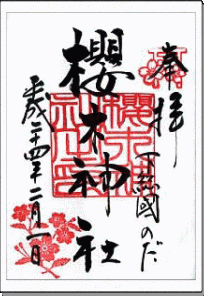 奉拝
下総國のだ
櫻木神社
平成二十四年二月一日